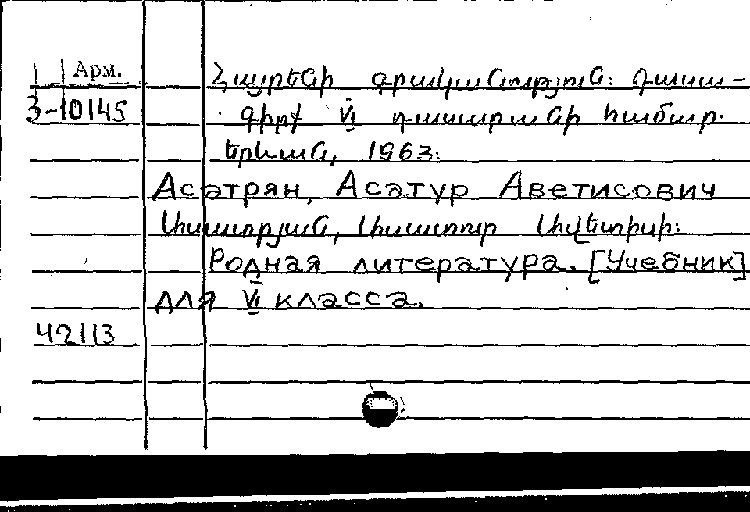 Арм.
Հայրենի գրականություն: Դասա-
3-10145
գիրք VI դասարանի համար.
Երևան, 1963:
Асатрян, Асатур Аветисович
Ասատրյան, Ասատուր Ավետիսի:
Родная литература. [Учебник]
для VI класса.
42113